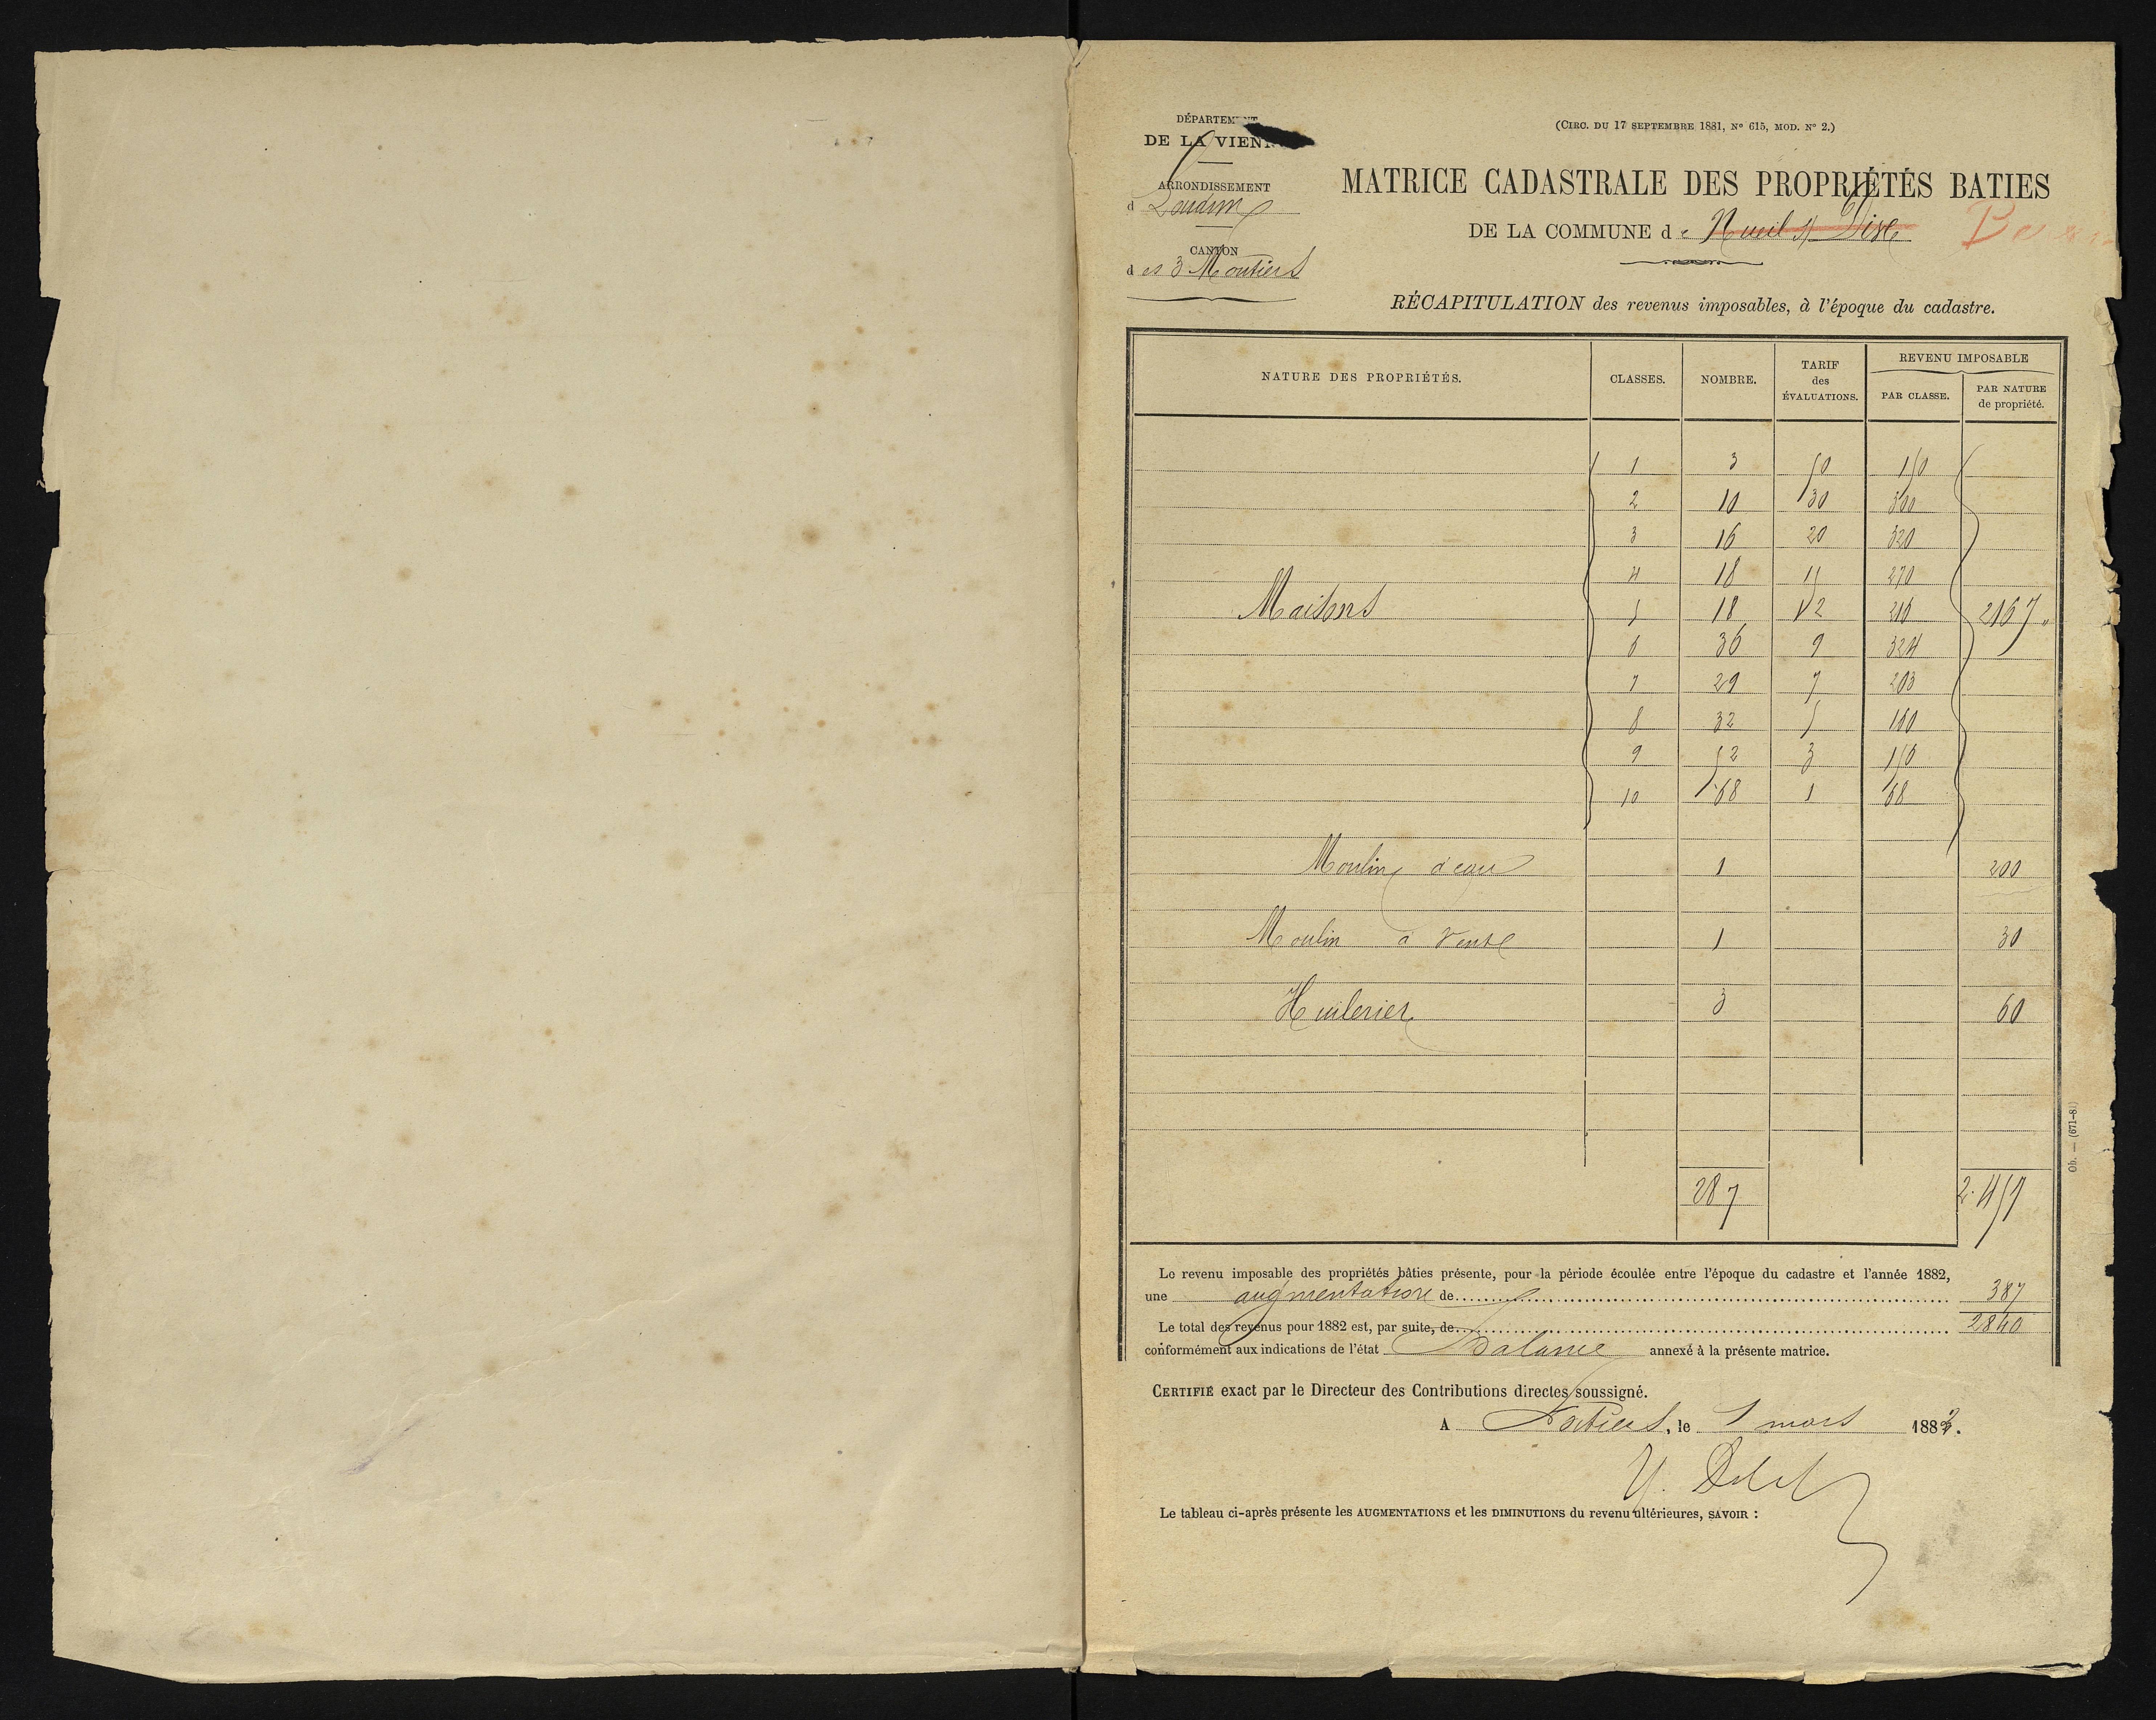 DÉPARTEMENT
DE LA VIENNE
ARRONDISSEMENT
d Loudun
CANTON
d es 3 Moutiers
(CIRC. DU 17 SEPTEMBRE 1881, N° 615, MOD. N° 2.)
MATRICE CADASTRALE DES PROPRIÉTÉS BATIES
DE LA COMMUNE d e Nueil s/ Dive
RÉCAPITULATION des revenus imposables, à l'époque du cadastre.
NATURE DES PROPRIÉTÉS. CLASSES. NOMBRE. TARIF des ÉVALUATIONS. REVENU IMPOSABLE PAR CLASSE. PAR NATURE de propriété.
1 3 50 150
2 10 30 300
3 16 20 320
4 18 15 270
Maisons 5 18 12 216 2167 "
6 36 9 324
7 29 7 203
8 32 5 160
9 52 3 156
10 68 1 68
Moulin à eau 1 200
Moulin à vent 1 30
Huileries 3 60
287 2.457
Le revenu imposable des propriétés bâties présente, pour la période écoulée entre l'époque du cadastre et l'année 1882,
une augmentation de 387
Le total des revenus pour 1882 est, par suite, de 2840
conformément aux indications de l'état Balance annexé à la présente matrice.
CERTIFIÉ exact par le Directeur des Contributions directes soussigné.
A Poitiers, le 1 mars 1882.
Le tableau ci-après présente les AUGMENTATIONS et les DIMINUTIONS du revenu ultérieures, SAVOIR :
Ob. — (671-81)